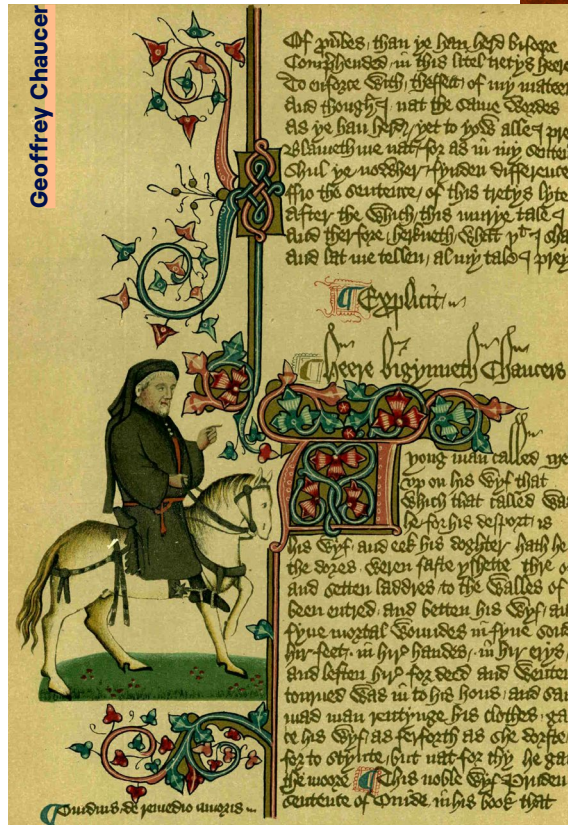 Geoffrey Chaucer
Of prũbes than ye han herd bifore
Comprehended in this litel tretys heere
To enforce with theffect of my mateer
And though I nat the same wordes
as ye han herd yet to yow alle I prey
Blameth me nat for as in my sentence
Shul ye nowher fynden difference
ffro the sentence of this tretys lyte
after the which this murye tale I
And therfore herkneth what yt I sha
and lat me tellen al my tale I prey
Explicit
Heere bigynneth Chaucers
A yong man called Me
vp on his wyf that
which that called was
he for his desport is
his wyf and eek his doghter hath he
the dores weren faste yshette thre o
and setten laddres to the walles of
been entred and betten his wyf an
fyue mortal woundes in fyue son
hir feet in hir handes in hir erys
and leften hir for deed and wenten
torned was in to his hous and sau
mad man rentynge his clothes ga
ce his wyf as ferforth as she dorste
for to stynte but nat for thy he ga
the moore This noble wyf Pruden
sentence of Ouide in his book that
Ouidius de remedio amoris